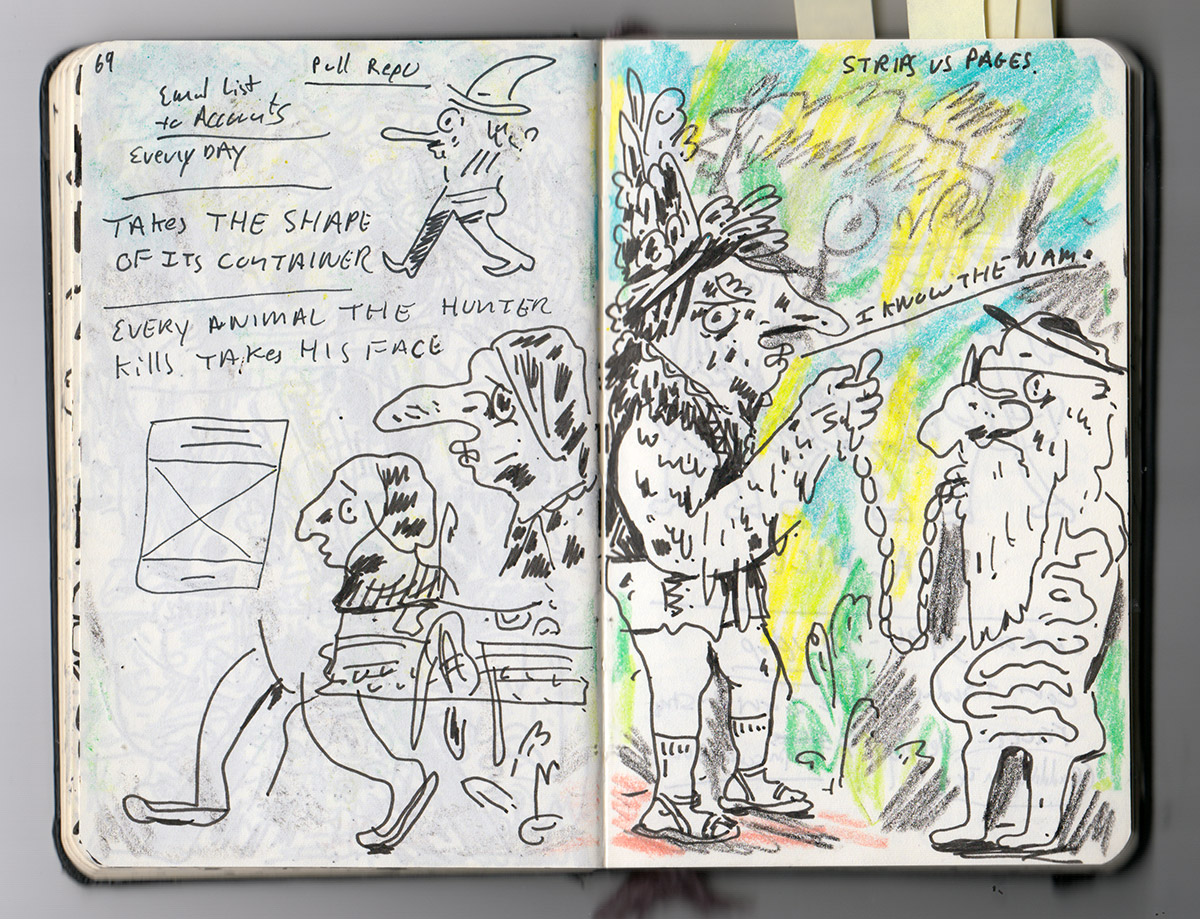 69
Pull
Email List
to Accounts
Every DAY
TAKes THE SHAPE
OF ITS CONTAINER
EVERY ANIMAL THE HUNTER
Kills. TAKes HIS FACE
STRIPS VS PAGES.
I KNOW THE NAME